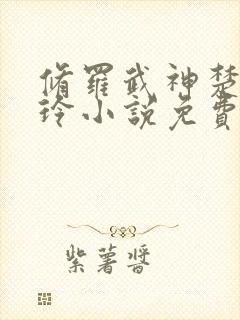 脩羅武神楚
玲小說免費
紫薯醬